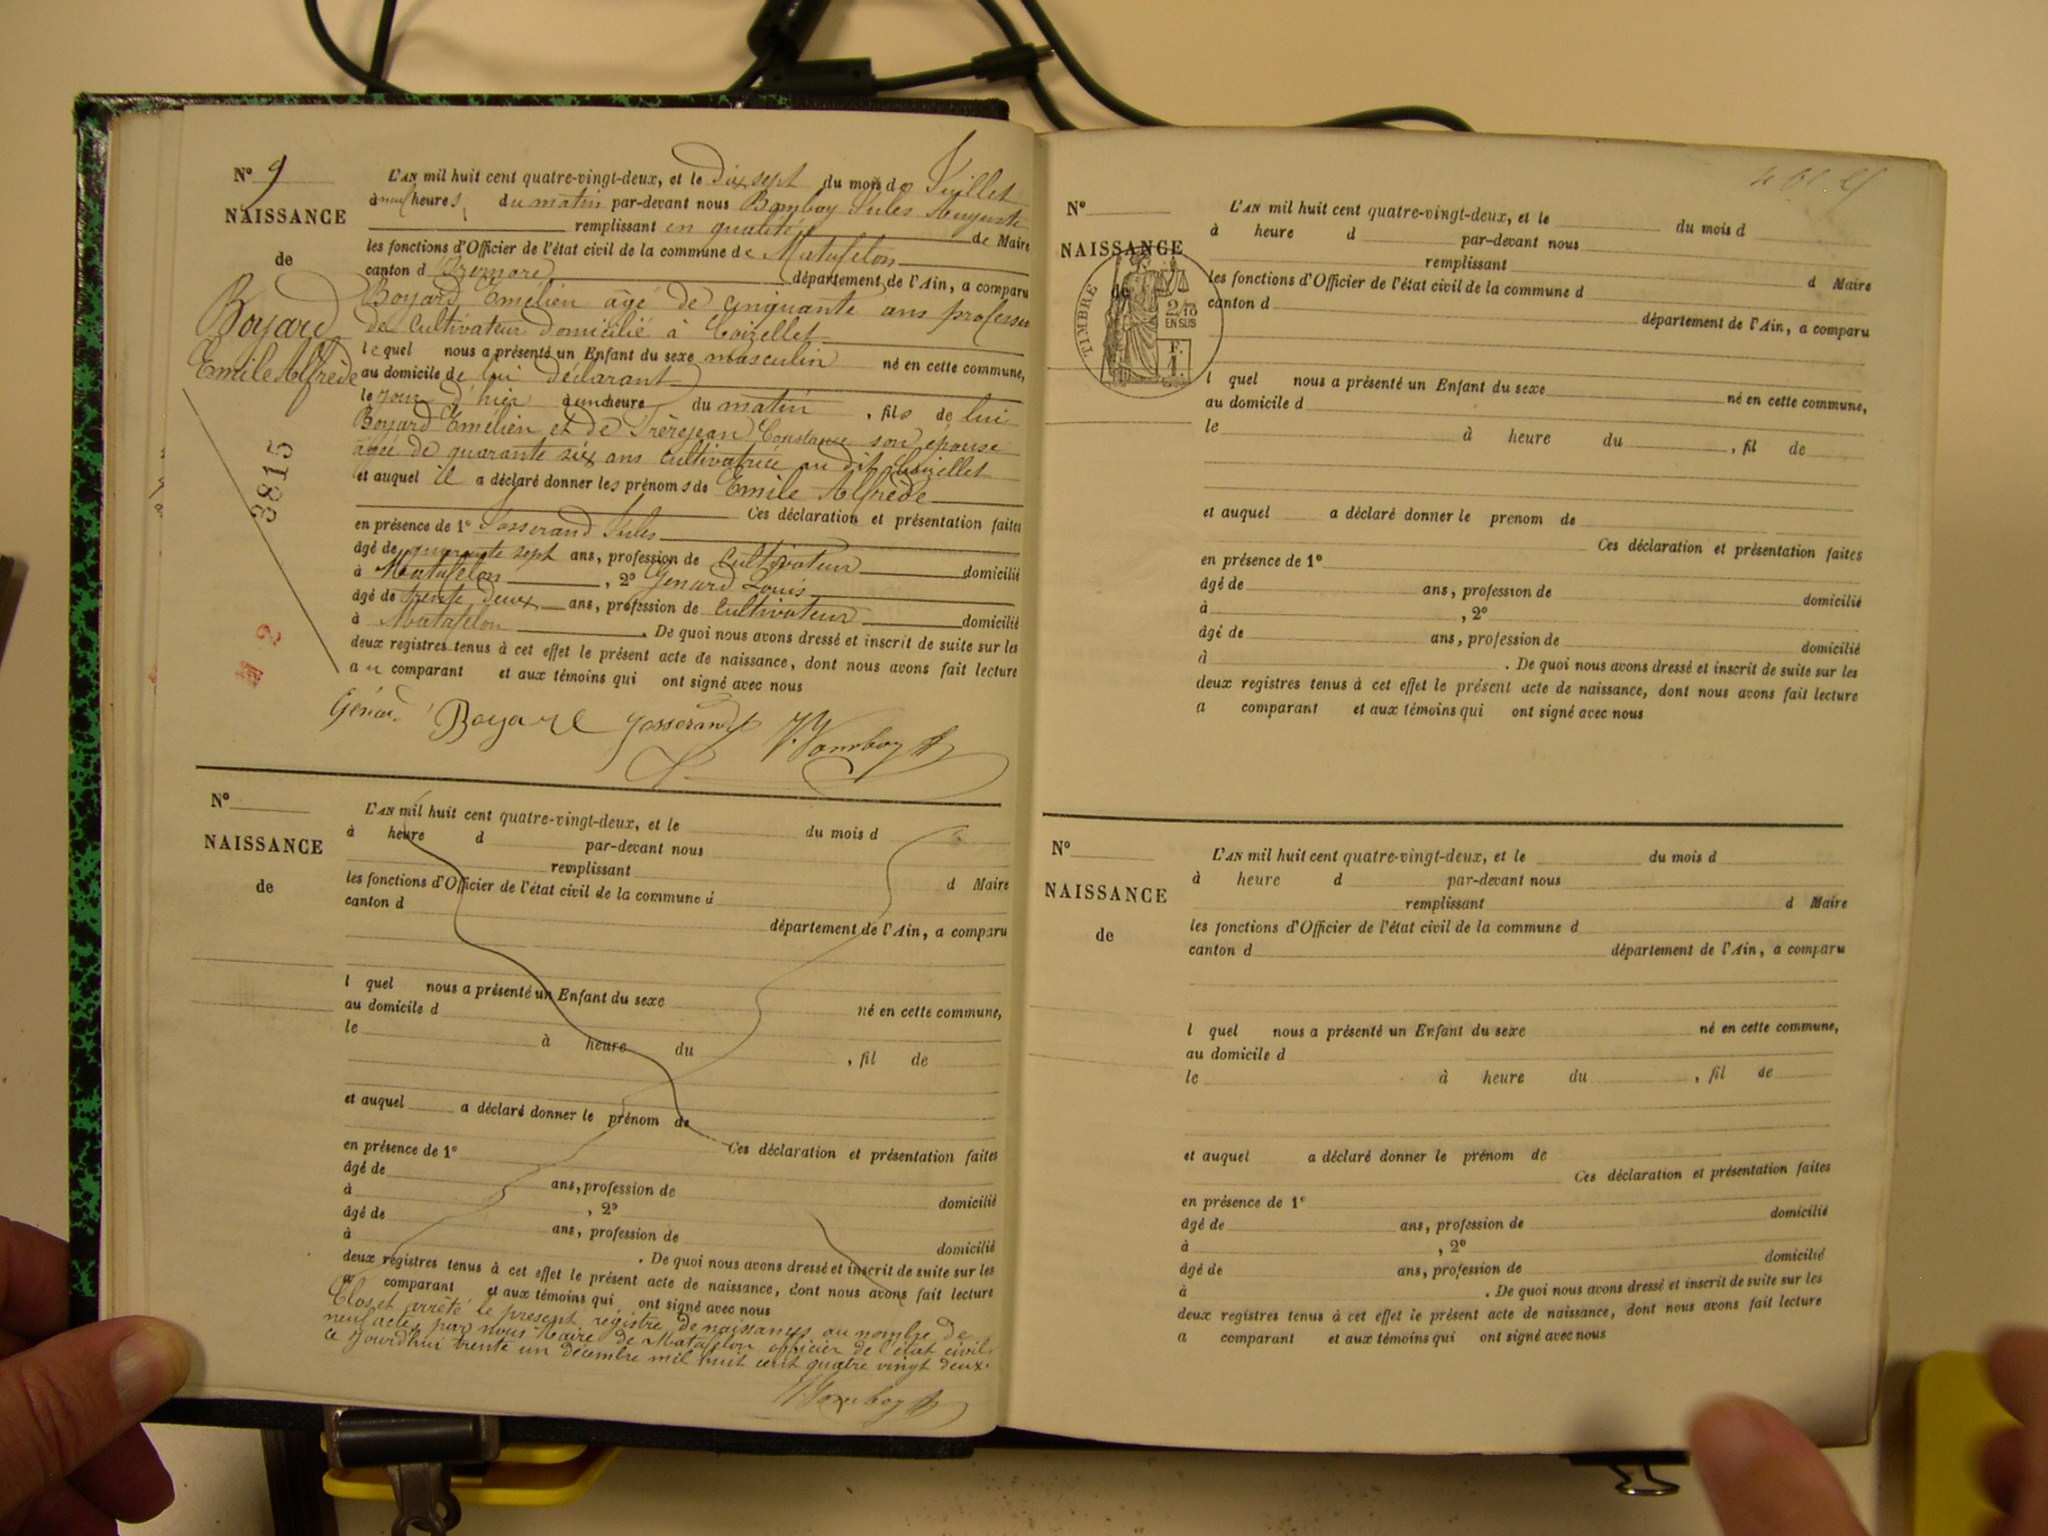 N° 9
NAISSANCE
de
Boyard
Emile Alfrède
3815
L'AN mil huit cent quatre-vingt-deux, et le Dix sept du mois de Juillet
à neuf heures du matin par-devant nous Bomboy Jules Auguste
remplissant en qualité de Maire
les fonctions d'Officier de l'état civil de la commune de Matafelon
canton d département de l'Ain, a comparu
Boyard Emélien âgé de cinquante ans profession
de Cultivateur domicilié à Coizellet
lequel nous a présenté un Enfant du sexe masculin né en cette commune,
au domicile de lui déclarant
le jour d'hier à une heure du matin, fils de lui
Boyard Emélien et de Frèrejean Constance son épouse
agée de quarante six ans cultivatrice au dit Coizellet
et auquel il a déclaré donner les prénoms de Emile Alfrède
Ces déclaration et présentation faites
en présence de 1° Josserand Jules
âgé de quarante sept ans, profession de Cultivateur domicilié
à Matafelon, 2° Génard Louis
âgé de trente deux ans, profession de Cultivateur domicilié
à Matafelon. De quoi nous avons dressé et inscrit de suite sur les
deux registres tenus à cet effet le présent acte de naissance, dont nous avons fait lecture
au comparant et aux témoins qui ont signé avec nous
Génard Boyard Josserand J. Bomboy
N°
NAISSANCE
de
L'AN mil huit cent quatre-vingt-deux, et le du mois d
à heure d par-devant nous
remplissant d Maire
les fonctions d'Officier de l'état civil de la commune d
canton d département de l'Ain, a comparu
l quel nous a présenté un Enfant du sexe né en cette commune,
au domicile d
le à heure du , fil de
et auquel a déclaré donner le prénom de
Ces déclaration et présentation faites
en présence de 1°
âgé de ans, profession de domicilié
à , 2°
âgé de ans, profession de domicilié
à . De quoi nous avons dressé et inscrit de suite sur les
deux registres tenus à cet effet le présent acte de naissance, dont nous avons fait lecture
a comparant et aux témoins qui ont signé avec nous
Clos et arrêté le present registre de naissances au nombre de
neuf actes par nous Maire de Matafelon officier de l'état civil
ce jourd'hui trente un décembre mil huit cent quatre vingt deux.
Bomboy
N°
NAISSANCE
de
TIMBRE
2/10
EN SUS
F.
1.
L'AN mil huit cent quatre-vingt-deux, et le du mois d
à heure d par-devant nous
remplissant d Maire
les fonctions d'Officier de l'état civil de la commune d
canton d département de l'Ain, a comparu
l quel nous a présenté un Enfant du sexe né en cette commune,
au domicile d
le à heure du , fil de
et auquel a déclaré donner le prenom de
Ces déclaration et présentation faites
en présence de 1°
âgé de ans, profession de domicilié
à , 2°
âgé de ans, profession de domicilié
à . De quoi nous avons dressé et inscrit de suite sur les
deux registres tenus à cet effet le présent acte de naissance, dont nous avons fait lecture
a comparant et aux témoins qui ont signé avec nous
N°
NAISSANCE
de
L'AN mil huit cent quatre-vingt-deux, et le du mois d
à heure d par-devant nous
remplissant d Maire
les fonctions d'Officier de l'état civil de la commune d
canton d département de l'Ain, a comparu
l quel nous a présenté un Enfant du sexe né en cette commune,
au domicile d
le à heure du , fil de
et auquel a déclaré donner le prénom de
Ces déclaration et présentation faites
en présence de 1°
âgé de ans, profession de domicilié
à , 2°
âgé de ans, profession de domicilié
à . De quoi nous avons dressé et inscrit de suite sur les
deux registres tenus à cet effet le présent acte de naissance, dont nous avons fait lecture
a comparant et aux témoins qui ont signé avec nous